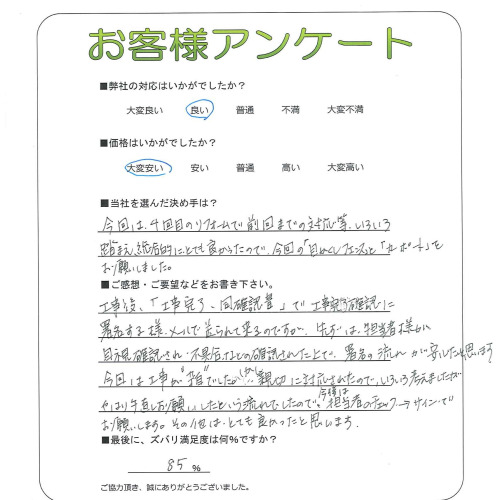 お客様アンケート
■弊社の対応はいかがでしたか？
大変良い 良い 普通 不満 大変不満
■価格はいかがでしたか？
大変安い 安い 普通 高い 大変高い
■当社を選んだ決め手は？
今回は、4回目のリフォームで前回までの対応等、いろいろ
踏まえ、総合的にとても良かったので、今回の「目かくしフェンス」と「カーポート」を
お願いしました。
■ご感想・ご要望などをお書き下さい。
工事後、「工事完了、同確認書」で工事完了確認に
署名する様、メールで送られて来るのですが、先ずは、担当者様が
目視確認され、不具合なしの確認されたことで、署名の流れが宜しいと思います
今回は工事が"雑"でした 親切に対応されたので、いろいろ考えましたが
やはり手直しお願いしたという流れでしたので、今後は担当者のチェック→サインで
お願いします。その他は、とても良かったと思います。
■最後に、ズバリ満足度は何％ですか？
85 ％
ご協力頂き、誠にありがとうございました。